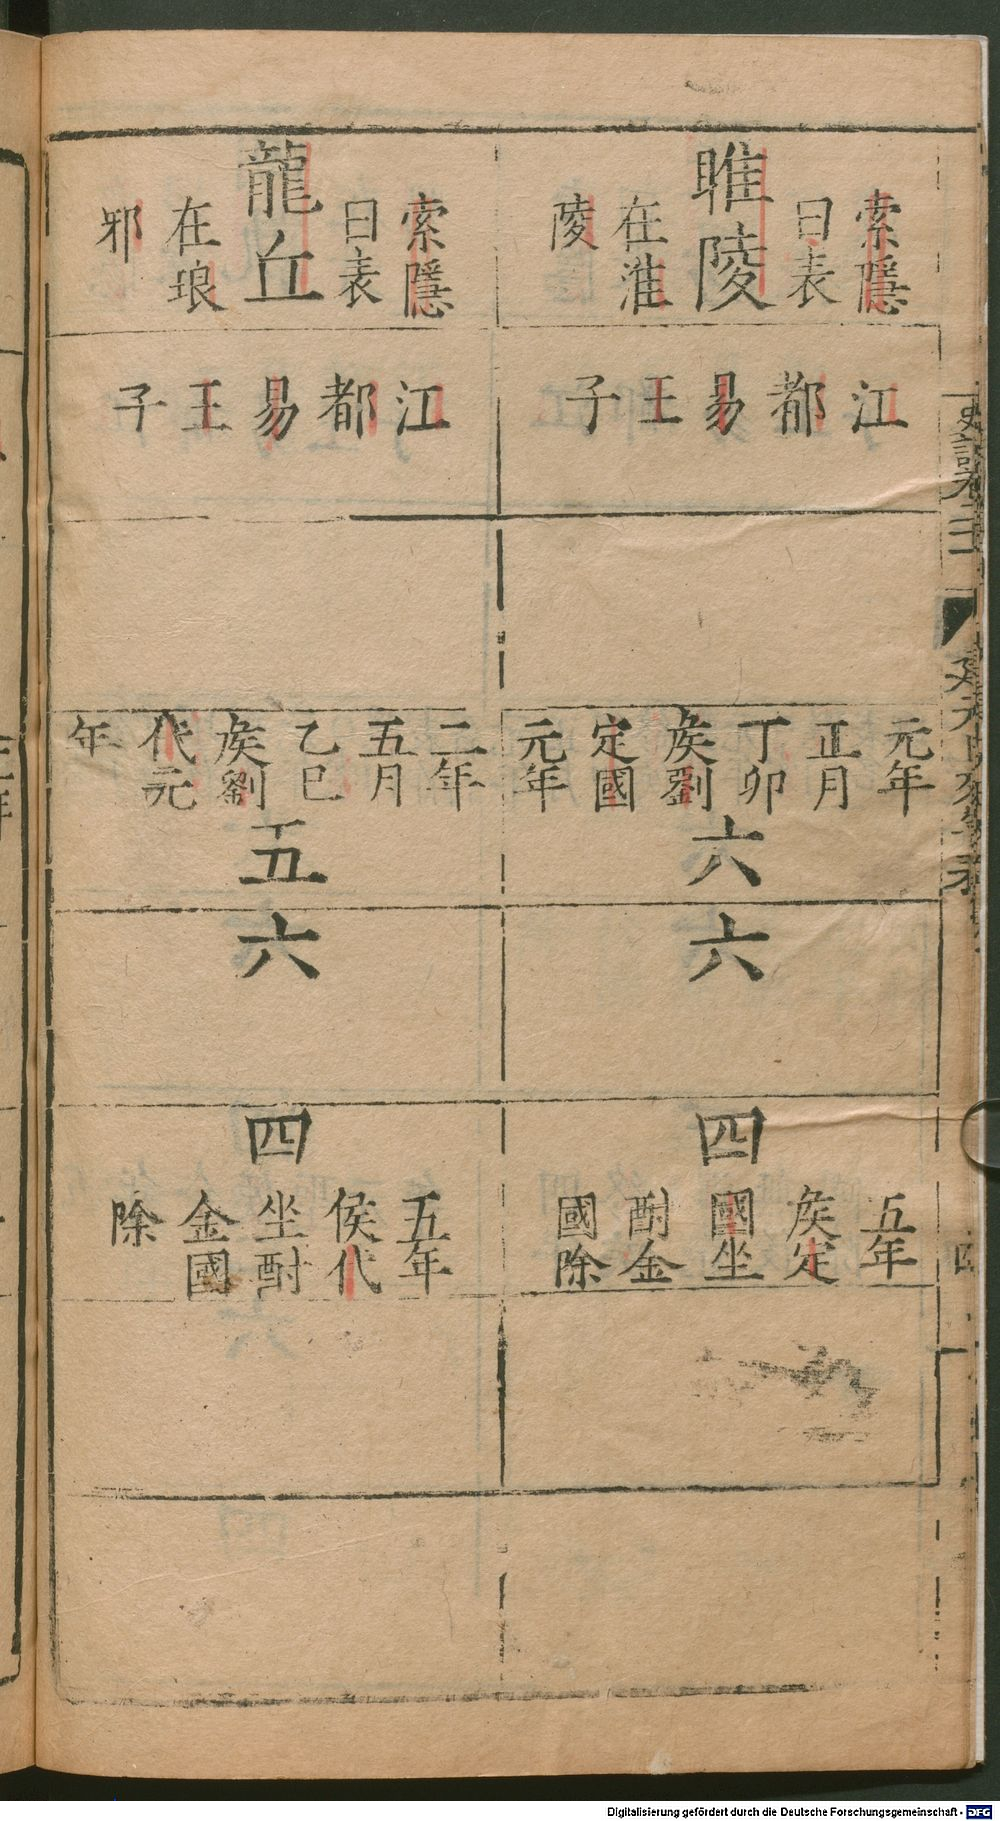 睢陵
索隱
曰表
在淮
陵
江都易王子
元年
正月
丁卯
矦劉
定國
元年
六
六
四
五年
矦定
國坐
酎金
國除
龍丘
索隱
曰表
在琅
邪
江都易王子
二年
五月
乙巳
矦劉
代元
年
五
六
四
五年
侯代
坐酎
金國
除
Digitalisierung gefördert durch die Deutsche Forschungsgemeinschaft - DFG